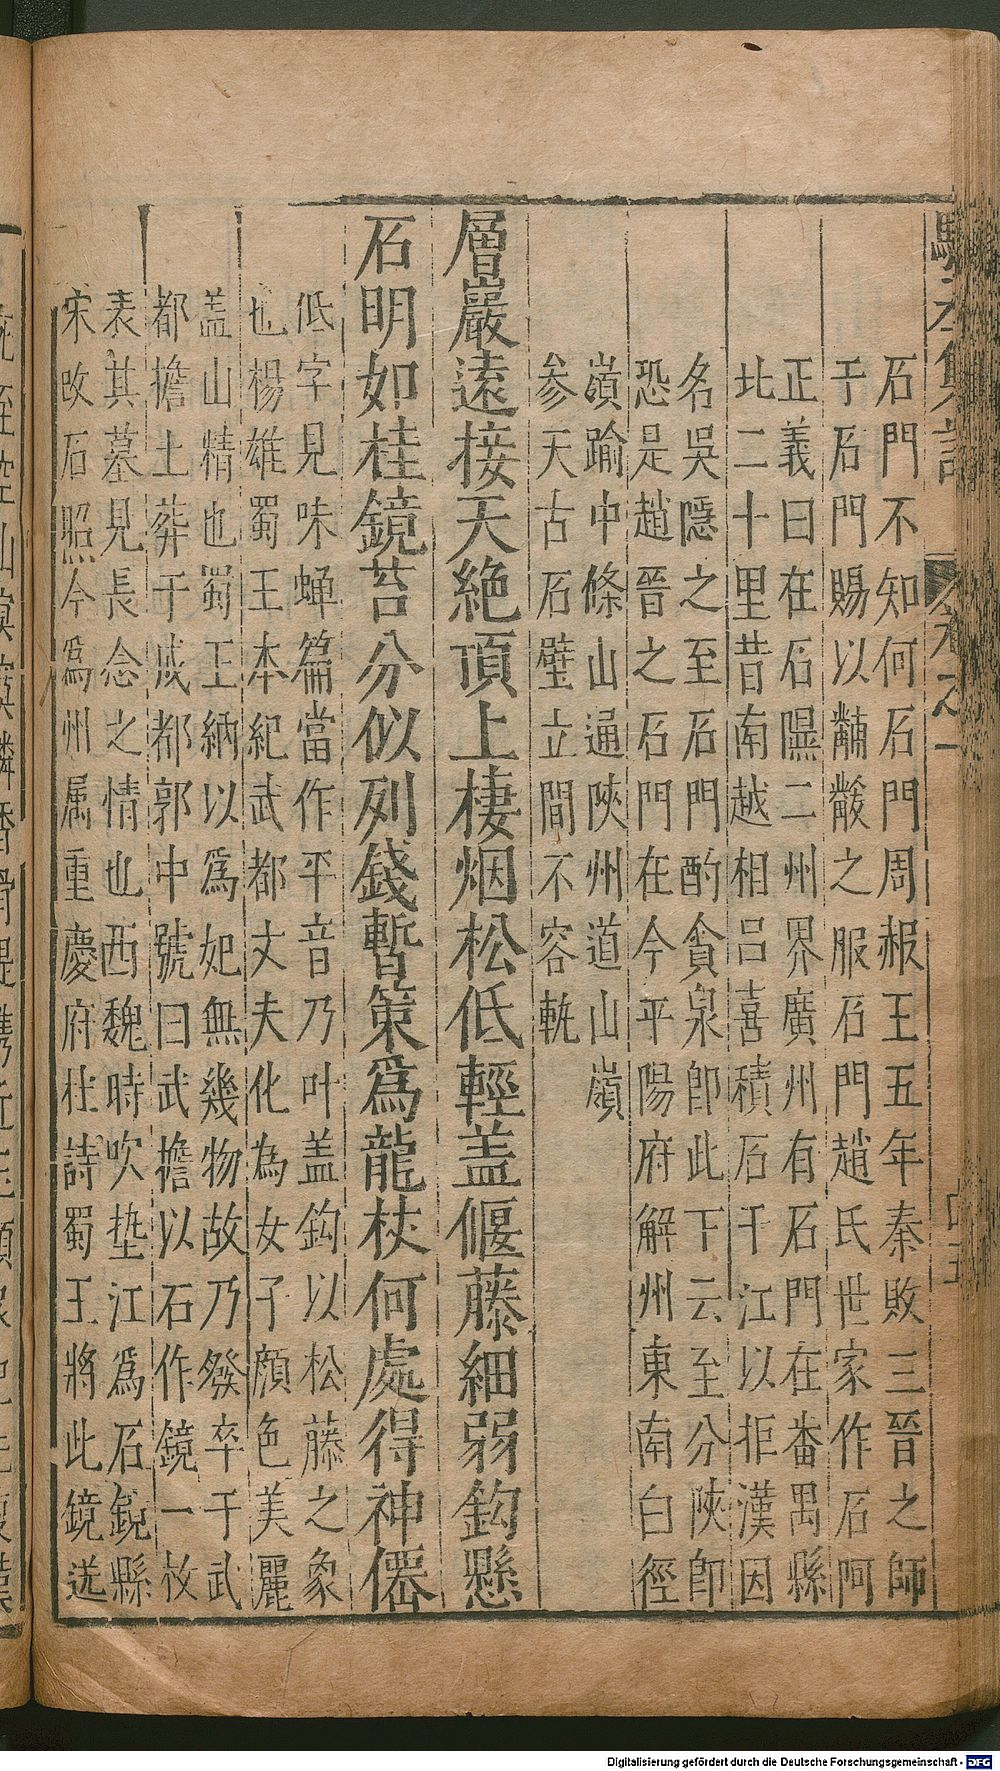 石門不知何石門周赧王五年秦敗三晉之師
于石門賜以黼黻之服石門趙氏世家作石阿
正義曰在石隰二州界廣州有石門在番禺縣
北二十里昔南越相呂喜積石于江以拒漢因
名吳隱之至石門酌貪泉卽此下云至分陜卽
恐是趙晉之石門在今平陽府解州東南白徑
嶺踰中條山通陜州道山嶺
參天古石壁立間不容軌
層巖遠接天絶頂上棲烟松低輕盖偃藤細弱鈎懸
石明如桂鏡苔分似列錢暫策爲龍杖何處得神僊
低字見味蟬篇當作平音乃叶盖鈎以松藤之象
也楊雄蜀王本紀武都丈夫化為女子顏色美麗
盖山精也蜀王納以爲妃無幾物故乃發卒于武
都擔土葬于成都郭中號曰武擔以石作鏡一枚
表其墓見長念之情也西魏時吹墊江爲石鏡縣
宋改石照今爲州属重慶府杜詩蜀王將此鏡送